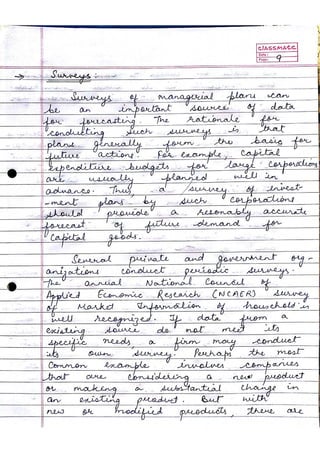 CLASSMATE
Date :
Page : 9
→ Surveys :
Surveys of managerial plans can
be an important source of data
for forecasting. The rationale for
conducting such surveys is that
plans generally form the basis for
future actions. For example, Capital
expenditure budgets for large corporations
are usually planned well in
advance. Thus, a survey of invest-
-ment plans by such corporations
should provide a resonably accurate
forecast of future demand for
Capital goods.
Several private and government org-
anizations conduct periodic surveys.
The annual National Council of
Applied Economic Research (NCAER) survey
of Market Information of households is
well recognized. If data from a
existing source do not meet its
specific needs, a firm may conduct
its own survey. Perhaps the most
common example involves companies
that are considering a new product
or making a substantial change in
an existing product. But with
new or modified products, there are